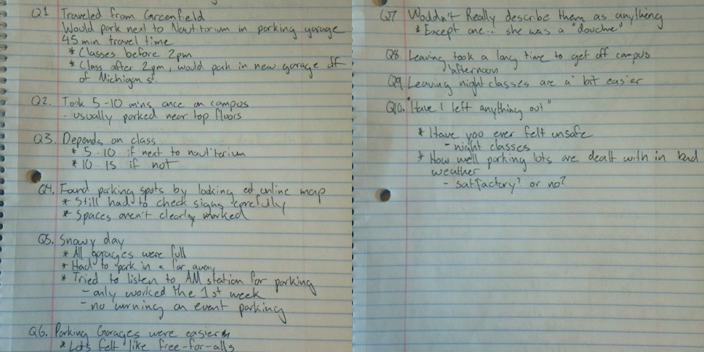 Q1 Traveled from Greenfield
Would park next to Nautorium in parking garage
45 min travel time
* Classes before 2pm
* Class after 2pm, would park in new garage off
of Michigan St
Q2. Took 5-10 mins, once on campus
- usually parked near top floors
Q3. Depends on class
* 5-10 if next to nautiterium
* 10-15 if not
Q4. Found parking spots by looking at online map
* Still had to check signs carefully
* Spaces aren't clearly marked
Q5. Snowy day
* All garages were full
* Had to park in a far away
* Tried to listen to AM station for parking
- only worked the 1st week
- no warning on event parking
Q6. Parking Garages were easier
* Lots felt like free-for-alls
Q7 Wouldn't Really describe them as anything
* Except one... she was a "douche"
Q8 Leaving took a long time to get off campus
afternoon
Q9 Leaving night classes are a bit easier
Q10. "Have I left anything out"
* Have you ever felt unsafe
- night classes
* How well parking lots are dealt with in bad
weather
- satisfactory? or no?